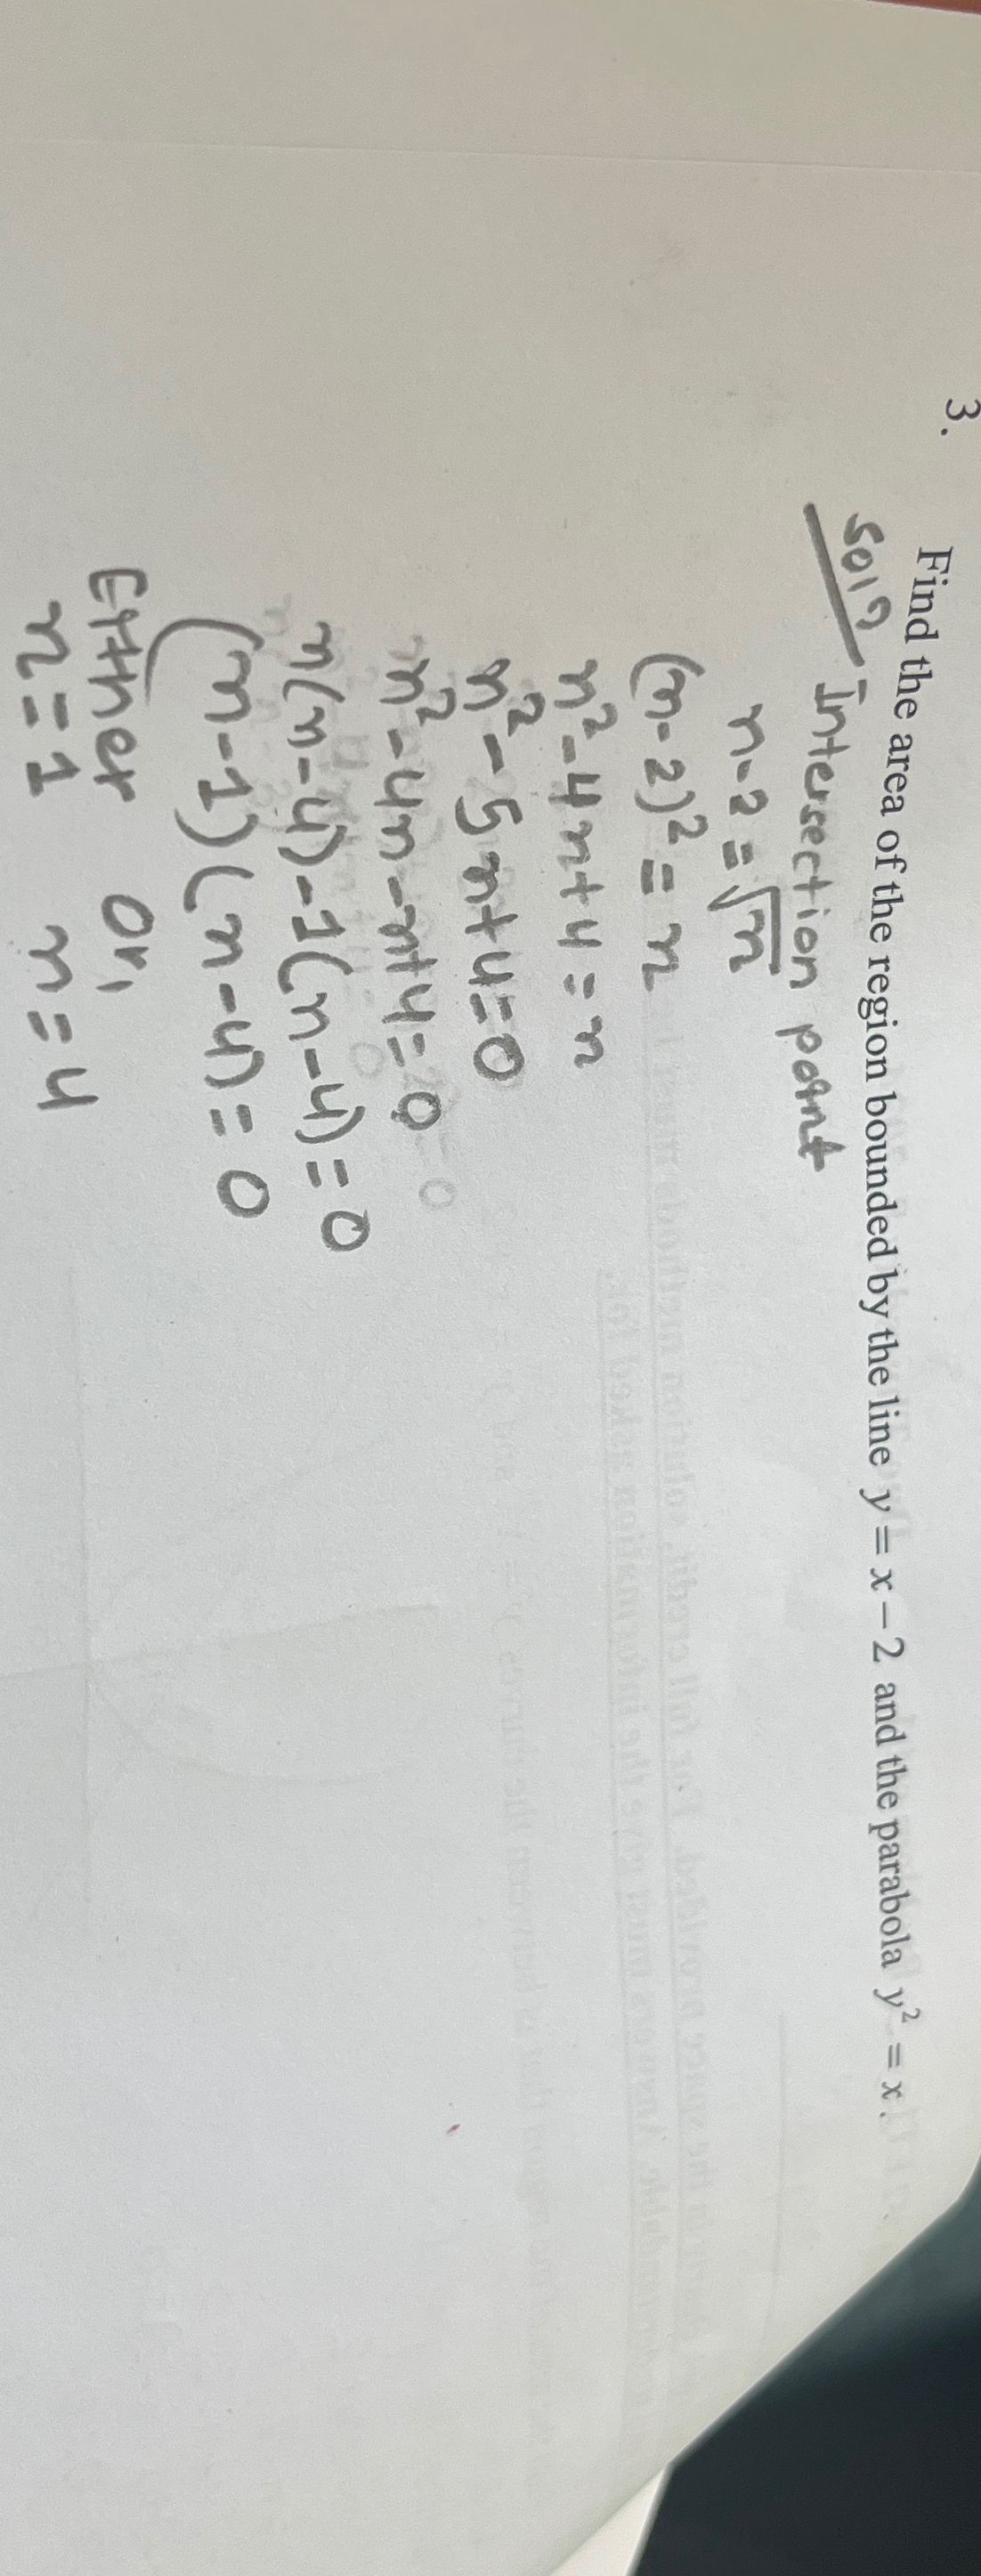 3. Find the area of the region bounded by the line y = x − 2 and the parabola y² = x.
Solⁿ Intersection point
x-2 = √x
(x-2)² = x
x² - 4x + 4 = x
x² - 5x + 4 = 0
x² - 4x - x + 4 = 0
x(x-4) - 1(x-4) = 0
(x-1)(x-4) = 0
Either Or,
x = 1 x = 4